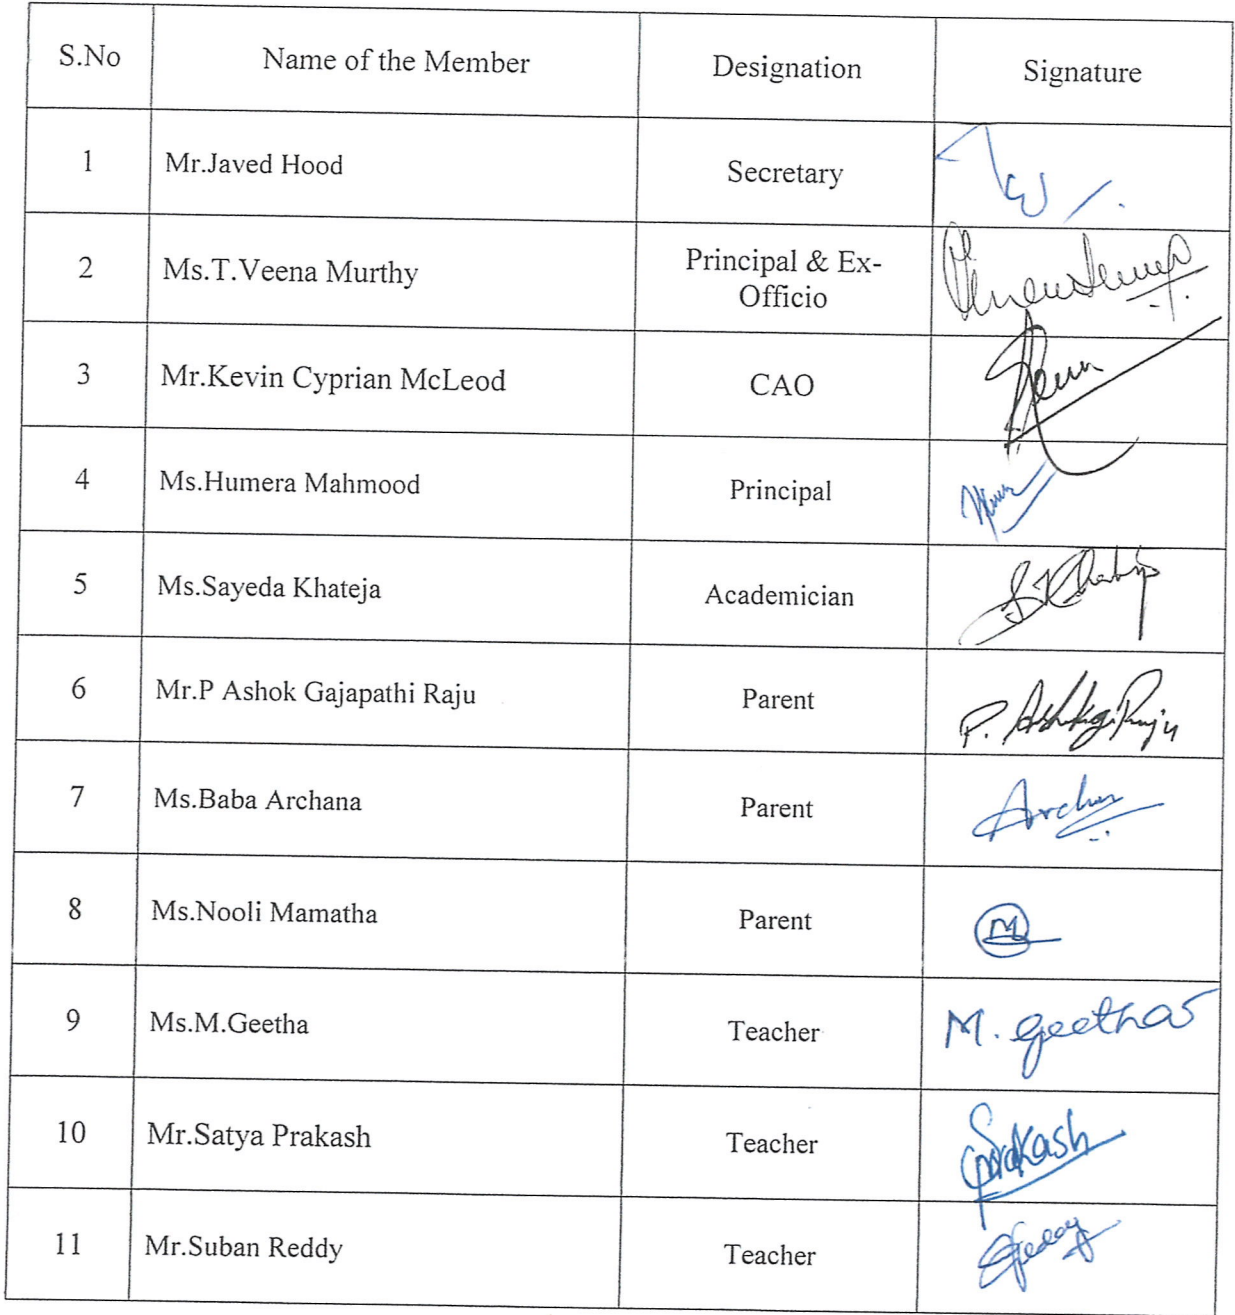 S.No Name of the Member Designation Signature
1 Mr.Javed Hood Secretary
2 Ms.T.Veena Murthy Principal & Ex-
Officio
3 Mr.Kevin Cyprian McLeod CAO
4 Ms.Humera Mahmood Principal
5 Ms.Sayeda Khateja Academician
6 Mr.P Ashok Gajapathi Raju Parent
7 Ms.Baba Archana Parent
8 Ms.Nooli Mamatha Parent
9 Ms.M.Geetha Teacher M. geetha
10 Mr.Satya Prakash Teacher
11 Mr.Suban Reddy Teacher